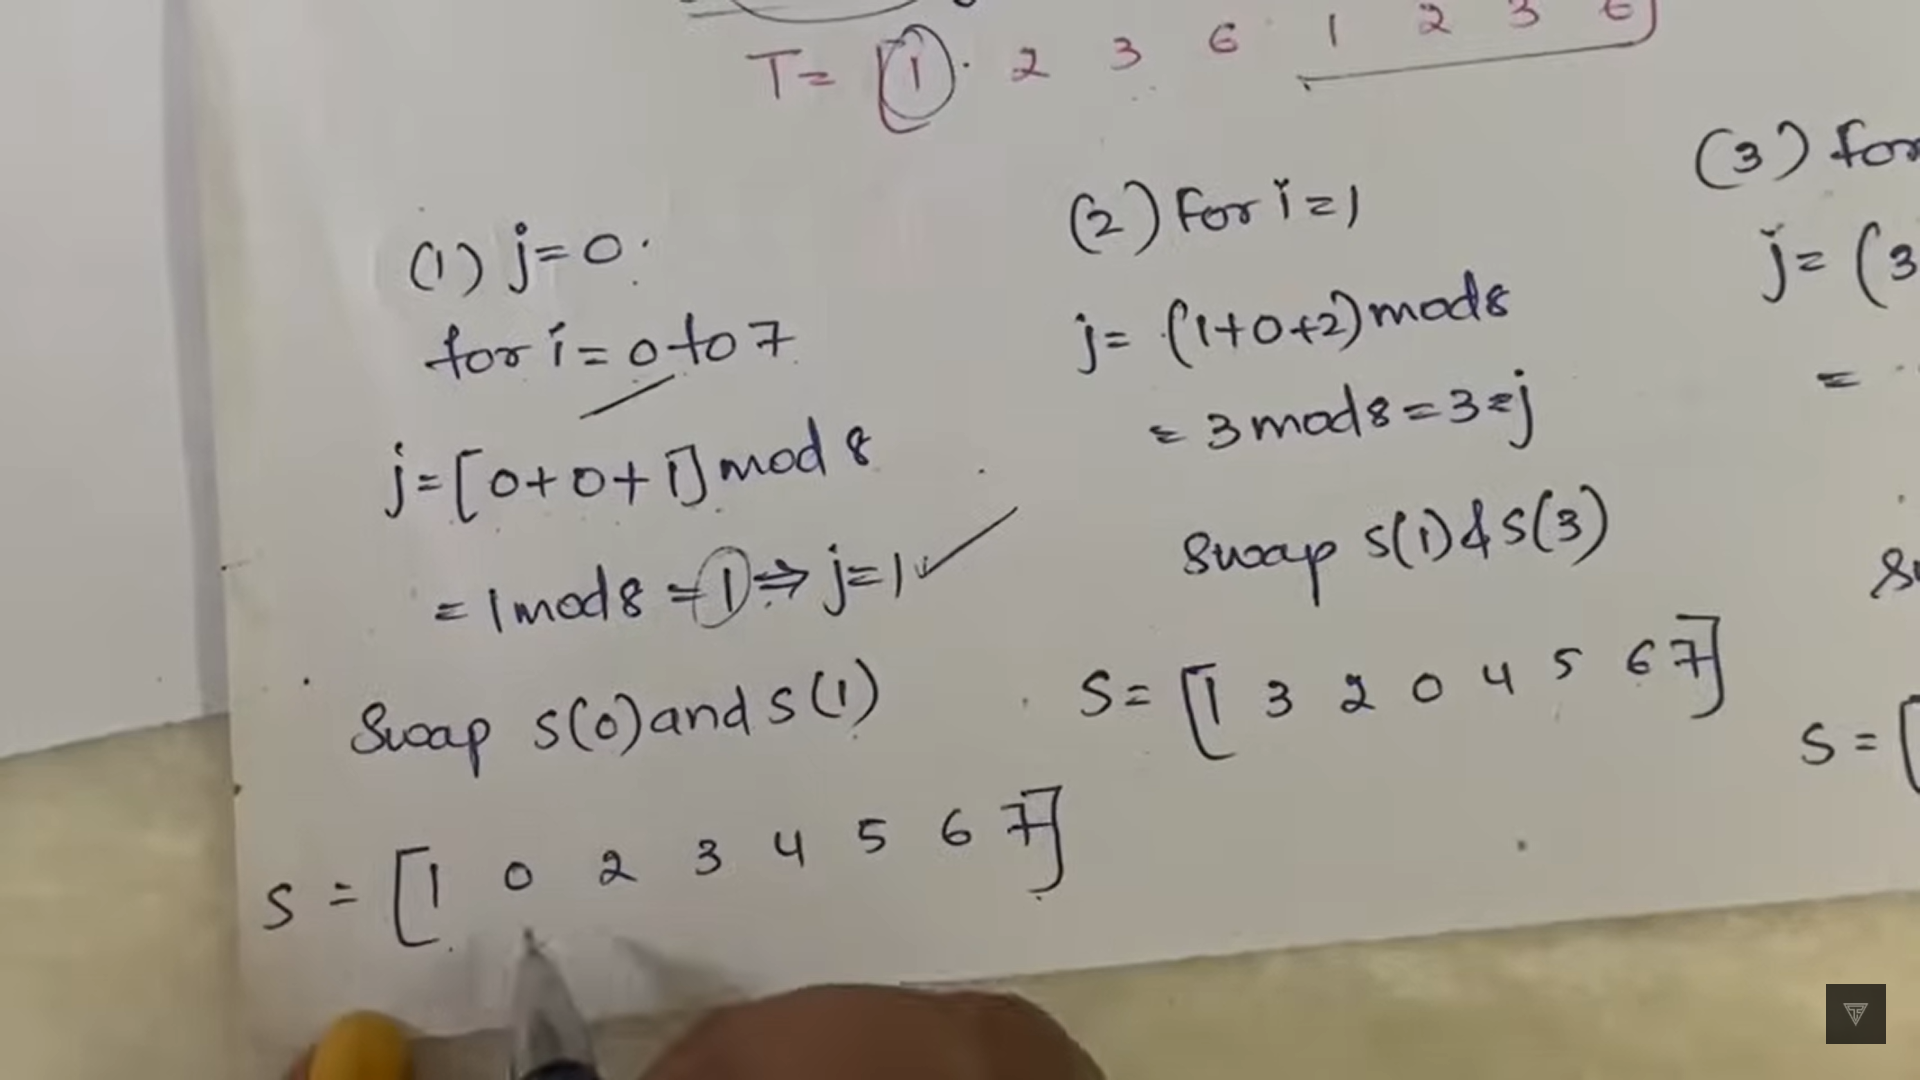 T= [1 2 3 6 1 2 3 6]
(1) j=0
for i=0 to 7
j=[0+0+1] mod 8
= 1 mod 8 = 1 ⇒ j=1 ✓
Swap s(0) and s(1)
S = [1 0 2 3 4 5 6 7]
(2) For i=1
j= (1+0+2) mod 8
= 3 mod 8 = 3 = j
Swap s(1) & s(3)
S= [1 3 2 0 4 5 6 7]
(3) for
j= (3
=
S = [